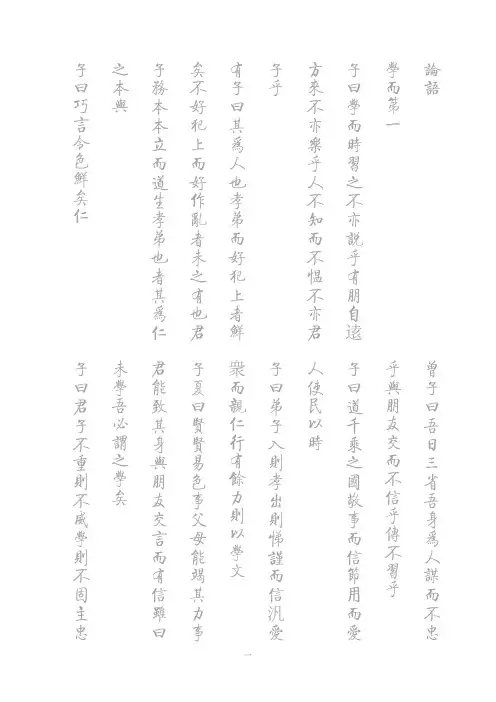 論語
學而第一
子曰學而時習之不亦說乎有朋自遠
方來不亦樂乎人不知而不愠不亦君
子乎
有子曰其爲人也孝弟而好犯上者鮮
矣不好犯上而好作亂者未之有也君
子務本本立而道生孝弟也者其爲仁
之本與
子曰巧言令色鮮矣仁
曾子曰吾日三省吾身爲人謀而不忠
乎與朋友交而不信乎傳不習乎
子曰道千乘之國敬事而信節用而愛
人使民以時
子曰弟子入則孝出則悌謹而信汎愛
衆而親仁行有餘力則以學文
子夏曰賢賢易色事父母能竭其力事
君能致其身與朋友交言而有信雖曰
未學吾必謂之學矣
子曰君子不重則不威學則不固主忠
一